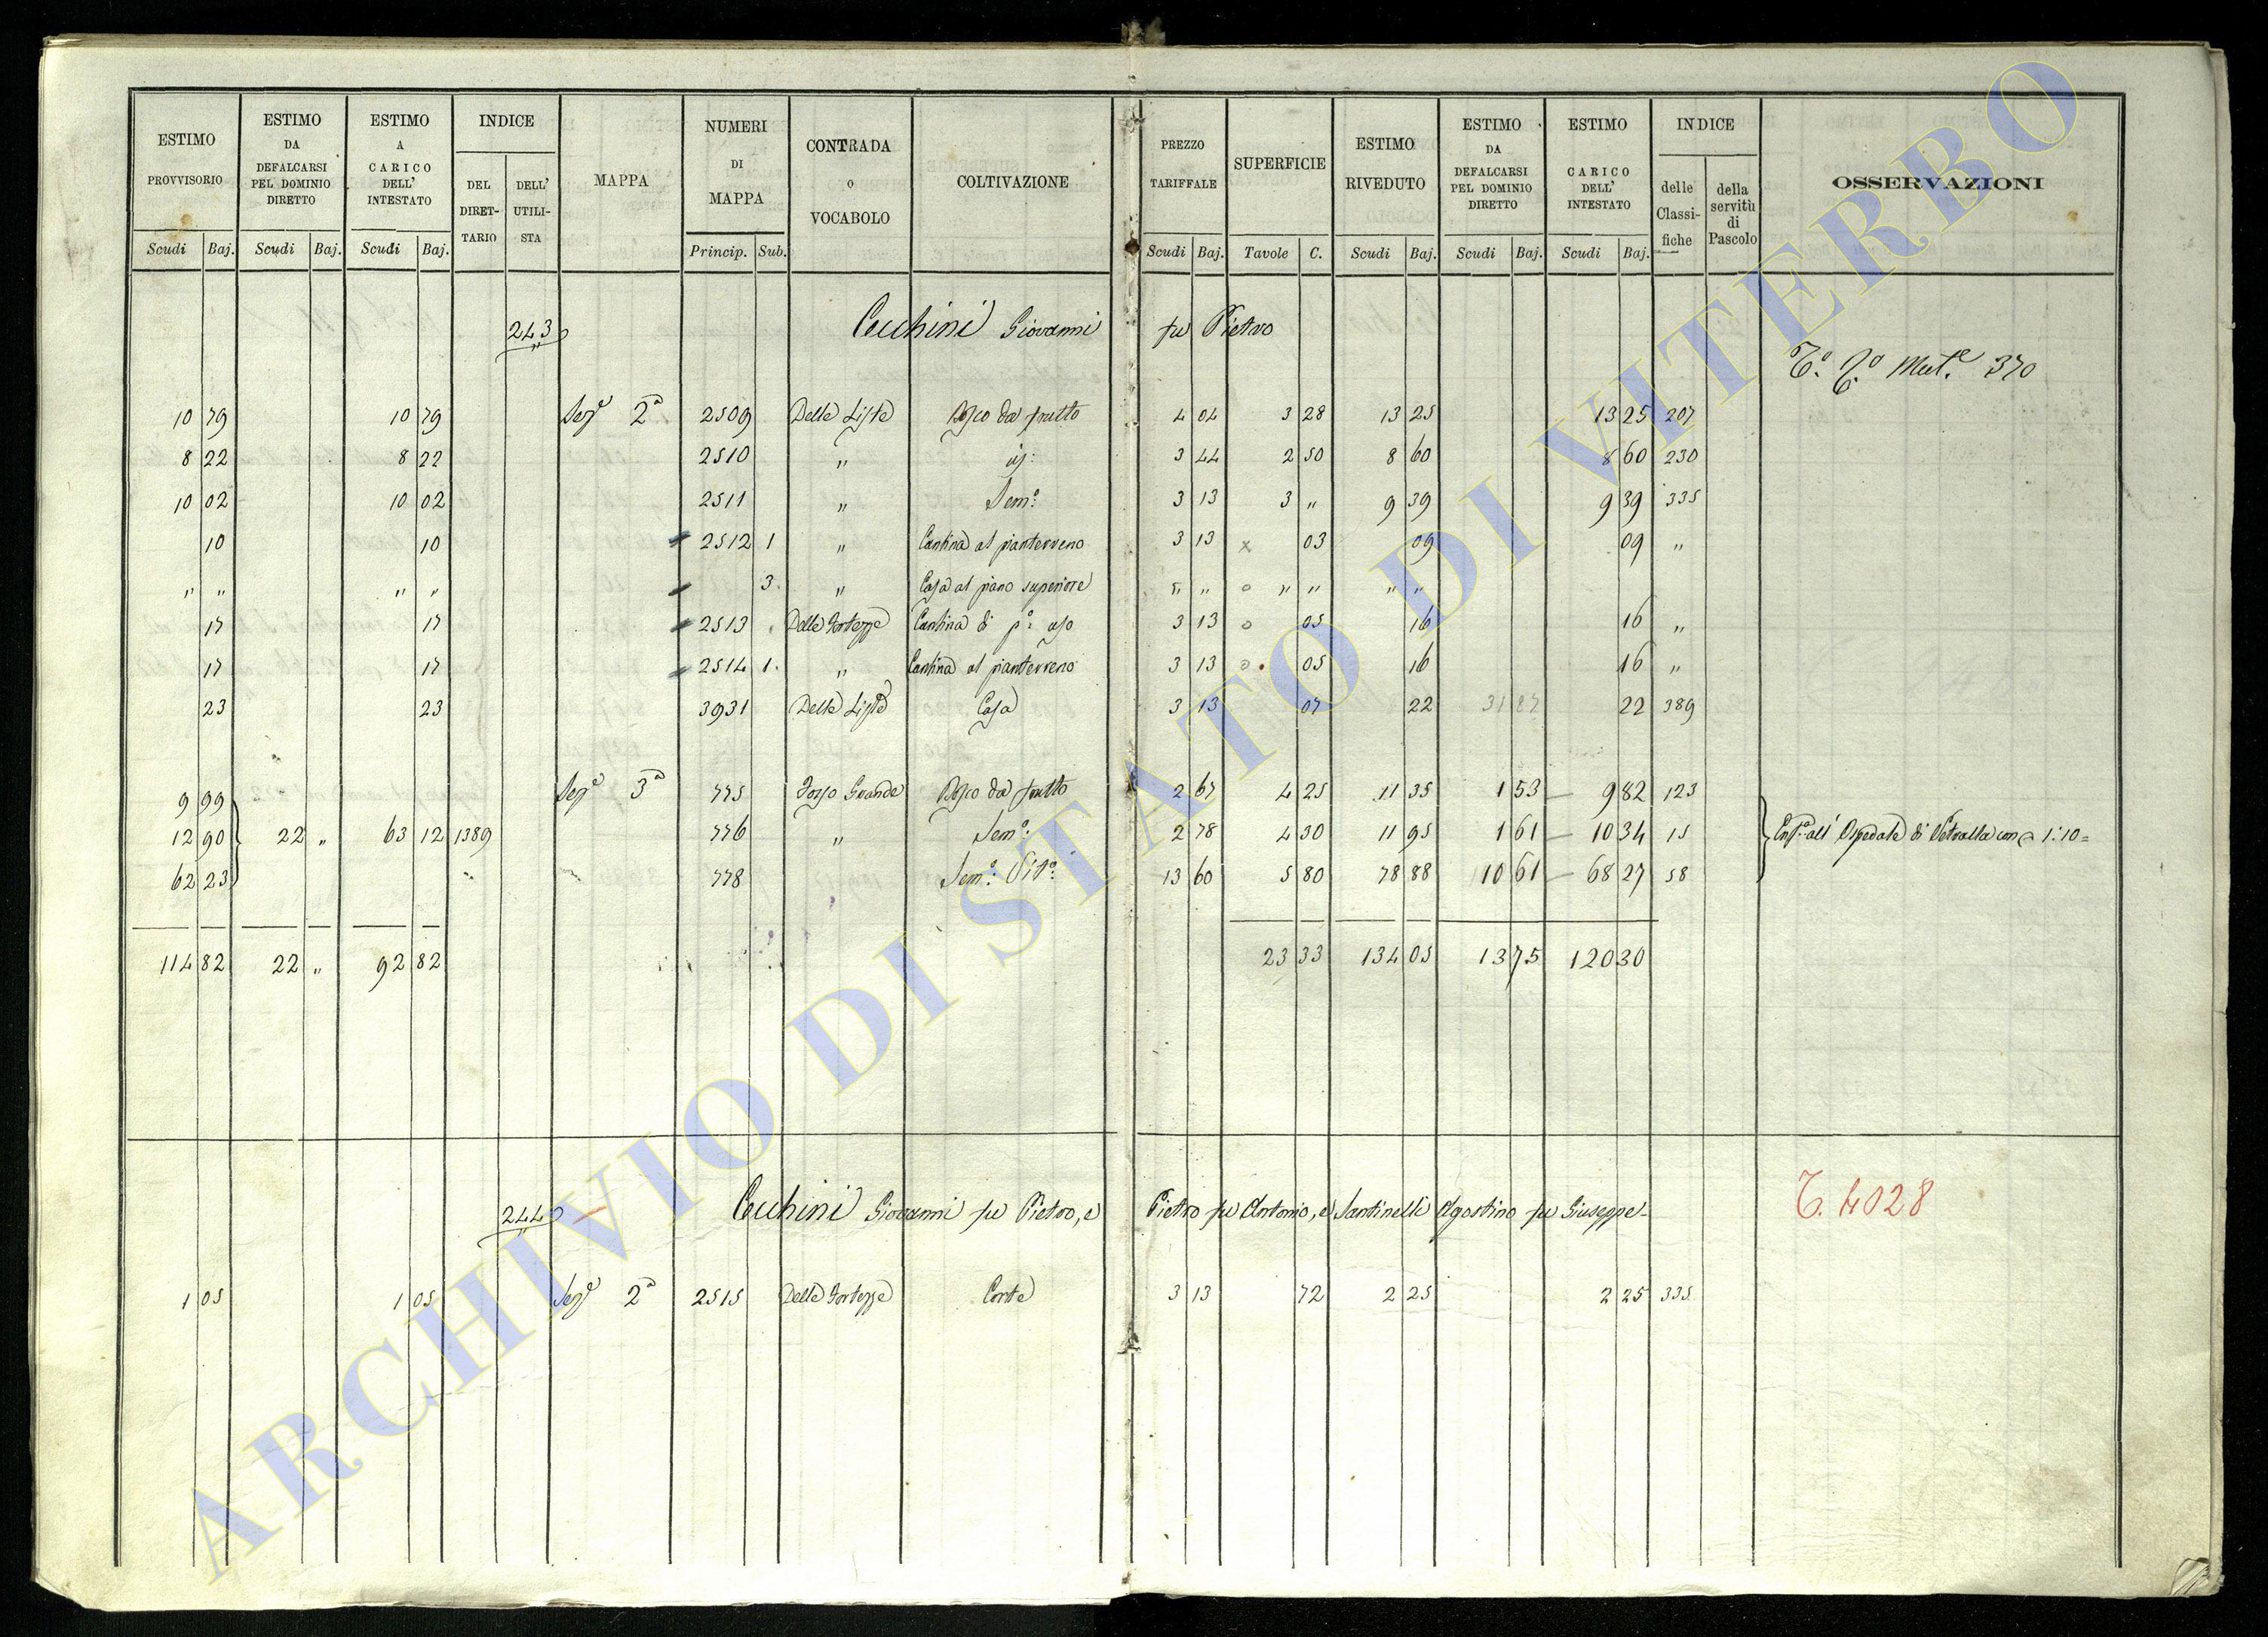 ESTIMO PROVVISORIO | ESTIMO DA DEFALCARSI PEL DOMINIO DIRETTO | ESTIMO A CARICO DELL' INTESTATO | INDICE | MAPPA | NUMERI DI MAPPA | CONTRADA O VOCABOLO | COLTIVAZIONE | PREZZO TARIFFALE | SUPERFICIE | ESTIMO RIVEDUTO | ESTIMO DA DEFALCARSI PEL DOMINIO DIRETTO | ESTIMO A CARICO DELL' INTESTATO | INDICE | OSSERVAZIONI
DEL DIRETTARIO | DELL' UTILISTA | delle Classifiche | della servitù di Pascolo
Scudi Baj. | Scudi Baj. | Scudi Baj. | Princip. Sub. | Scudi Baj. | Tavole C. | Scudi Baj. | Scudi Baj. | Scudi Baj.
243 Cecchini Giovanni fu Pietro
Mut.e 370
10 79 | 10 79 | Sez.e 2a | 2509 | Delle Liste | Bosco da frutto | 4 04 | 3 28 | 13 25 | 13 25 | 207
8 22 | 8 22 | 2510 | " | | 3 44 | 2 50 | 8 60 | 8 60 | 230
10 02 | 10 02 | 2511 | " | Sem.o | 3 13 | 3 " | 9 39 | 9 39 | 335
10 | 10 | 2512 1 | " | Cantina al pianterreno | 3 13 | x 03 | 09 | 09 | "
" " | " " | 3 | " | Casa al piano superiore | " " | o " " | " "
17 | 17 | 2513 | Delle Fortezze | Cantina di p.o uso | 3 13 | o 05 | 16 | 16 | "
17 | 17 | 2514 1 | " | Cantina al pianterreno | 3 13 | o 05 | 16 | 16 | "
23 | 23 | 3931 | Delle Liste | Casa | 3 13 | 07 | 22 | 31 87 | 22 | 389
9 99 | Sez.e 3a | 775 | Fosso Grande | Bosco da frutto | 2 67 | 4 25 | 11 35 | 1 53 | 9 82 | 123
12 90 | 22 " | 63 12 | 1389 | 776 | " | Sem.o | 2 78 | 4 30 | 11 95 | 1 61 | 10 34 | 15 | Enf.a all' Ospedale di Vetralla con 1:10=
62 23 | 778 | Sem.o Vit.o | 13 60 | 5 80 | 78 88 | 10 61 | 68 27 | 58
114 82 | 22 " | 92 82 | 23 33 | 134 05 | 13 75 | 120 30
244 Cecchini Giovanni fu Pietro, e Pietro fu Antonio, e Santinelli Agostino fu Giuseppe
T. 4028
1 05 | 1 05 | Sez.e 2a | 2515 | Delle Fortezze | Corte | 3 13 | 72 | 2 25 | 2 25 | 335
ARCHIVIO DI STATO DI VITERBO